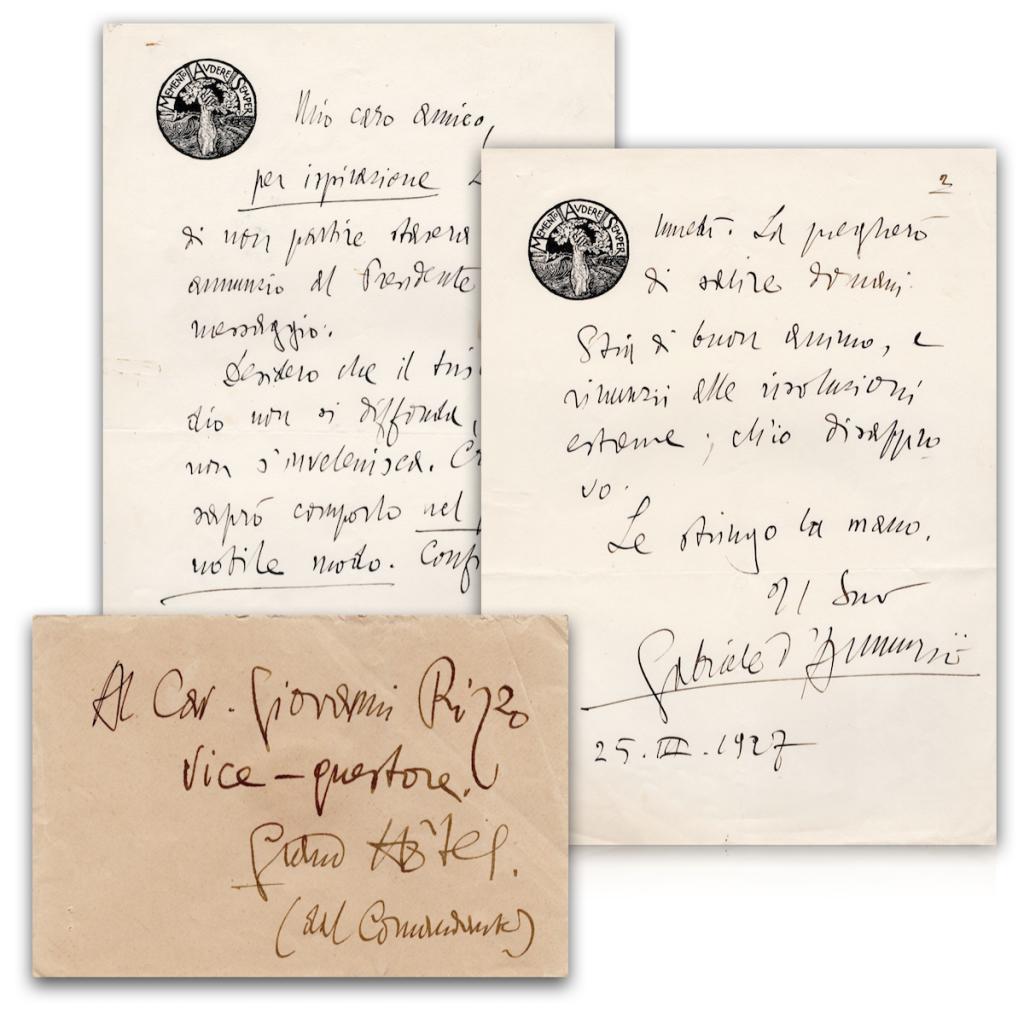 MEMENTO AUDERE SEMPER
Mio caro amico,
per ispirazione
di non partire stasera
annunzio al Presidente
messaggio.
Desidero che il
dio non si diffonda,
non s'invelenisca.
saprò comporlo nel
nobile modo.
2
MEMENTO AUDERE SEMPER
lunedì. La pregherò
di salire domani.
Stia di buon animo, e
rinunzii alle risoluzioni
estreme, ch'io disappro
vo.
Le stringo la mano.
Il Suo
Gabriele d'Annunzio
25.III.1927
Al Cav. Giovanni Rizzo
vice-questore.
Grand Hôtel.
(dal Comandante)